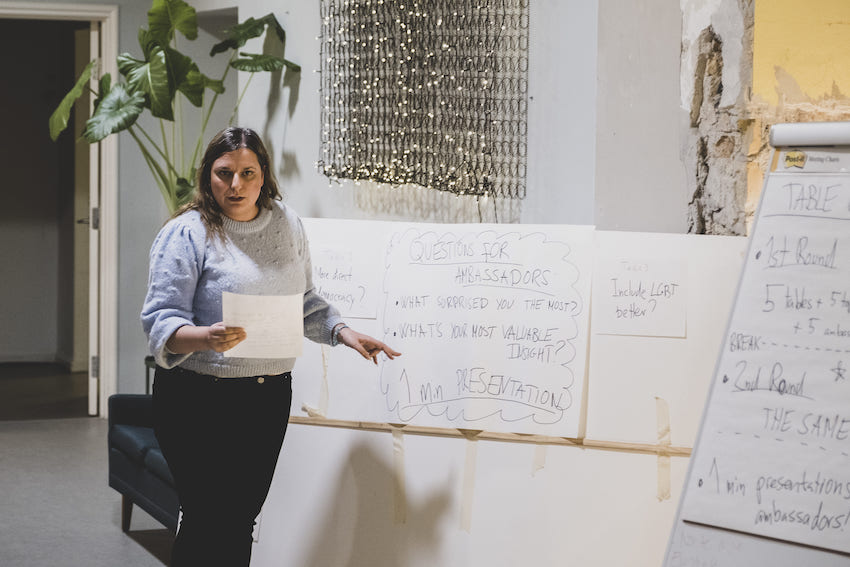 Table 1
More direct
democracy?
QUESTIONS FOR
AMBASSADORS
• WHAT SURPRISED YOU THE MOST?
• WHAT'S YOUR MOST VALUABLE
INSIGHT?
1 min PRESENTATION
Table 3
Include LGBT
better?
Post-it
Meeting Charts
TABLE
• 1st Round
5 tables + 5
+ 5 ambass
BREAK
• 2nd Round *
THE SAME
• 1 min presentations
ambassadors!